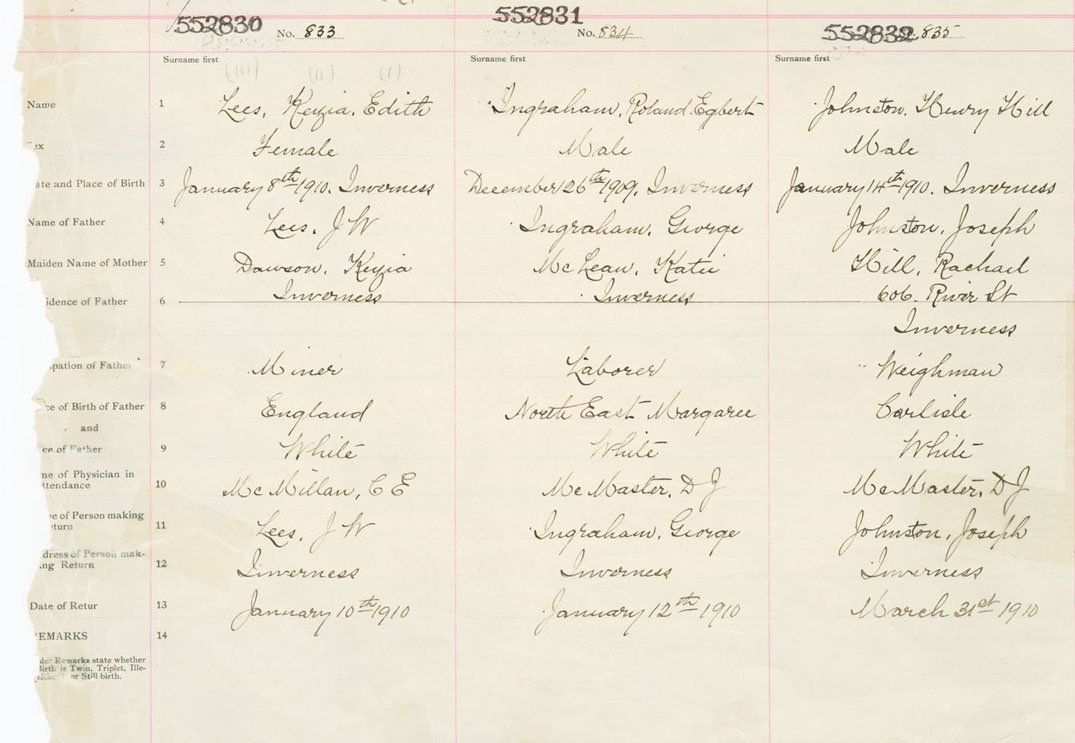 552830 No. 833 552831 No. 834 552832 835
Surname first Surname first Surname first
(III) (II) (I)
Name 1 Lees, Kezia, Edith Ingraham, Roland Egbert Johnston, Henry Hill
ex 2 Female Male Male
ate and Place of Birth 3 January 8th 1910. Inverness December 26th 1909, Inverness January 14th 1910. Inverness
Name of Father 4 Lees, J W Ingraham, George Johnston, Joseph
Maiden Name of Mother 5 Dawson, Kezia McLean, Katie Hill, Rachael
idence of Father 6 Inverness Inverness 606. River St
Inverness
pation of Father 7 Miner Laborer Weighman
ce of Birth of Father 8 England North East Margaree Carlisle
and
ce of Father 9 White White White
ne of Physician in
ttendance 10 McMillan, C E McMaster, D J McMaster, D J
e of Person making
turn 11 Lees, J W Ingraham, George Johnston, Joseph
dress of Person mak-
ng Return 12 Inverness Inverness Inverness
Date of Retur 13 January 10th 1910 January 12th 1910 March 31st 1910
EMARKS 14
der Remarks state whether
Birth is Twin, Triplet, Ille-
or Still-birth.